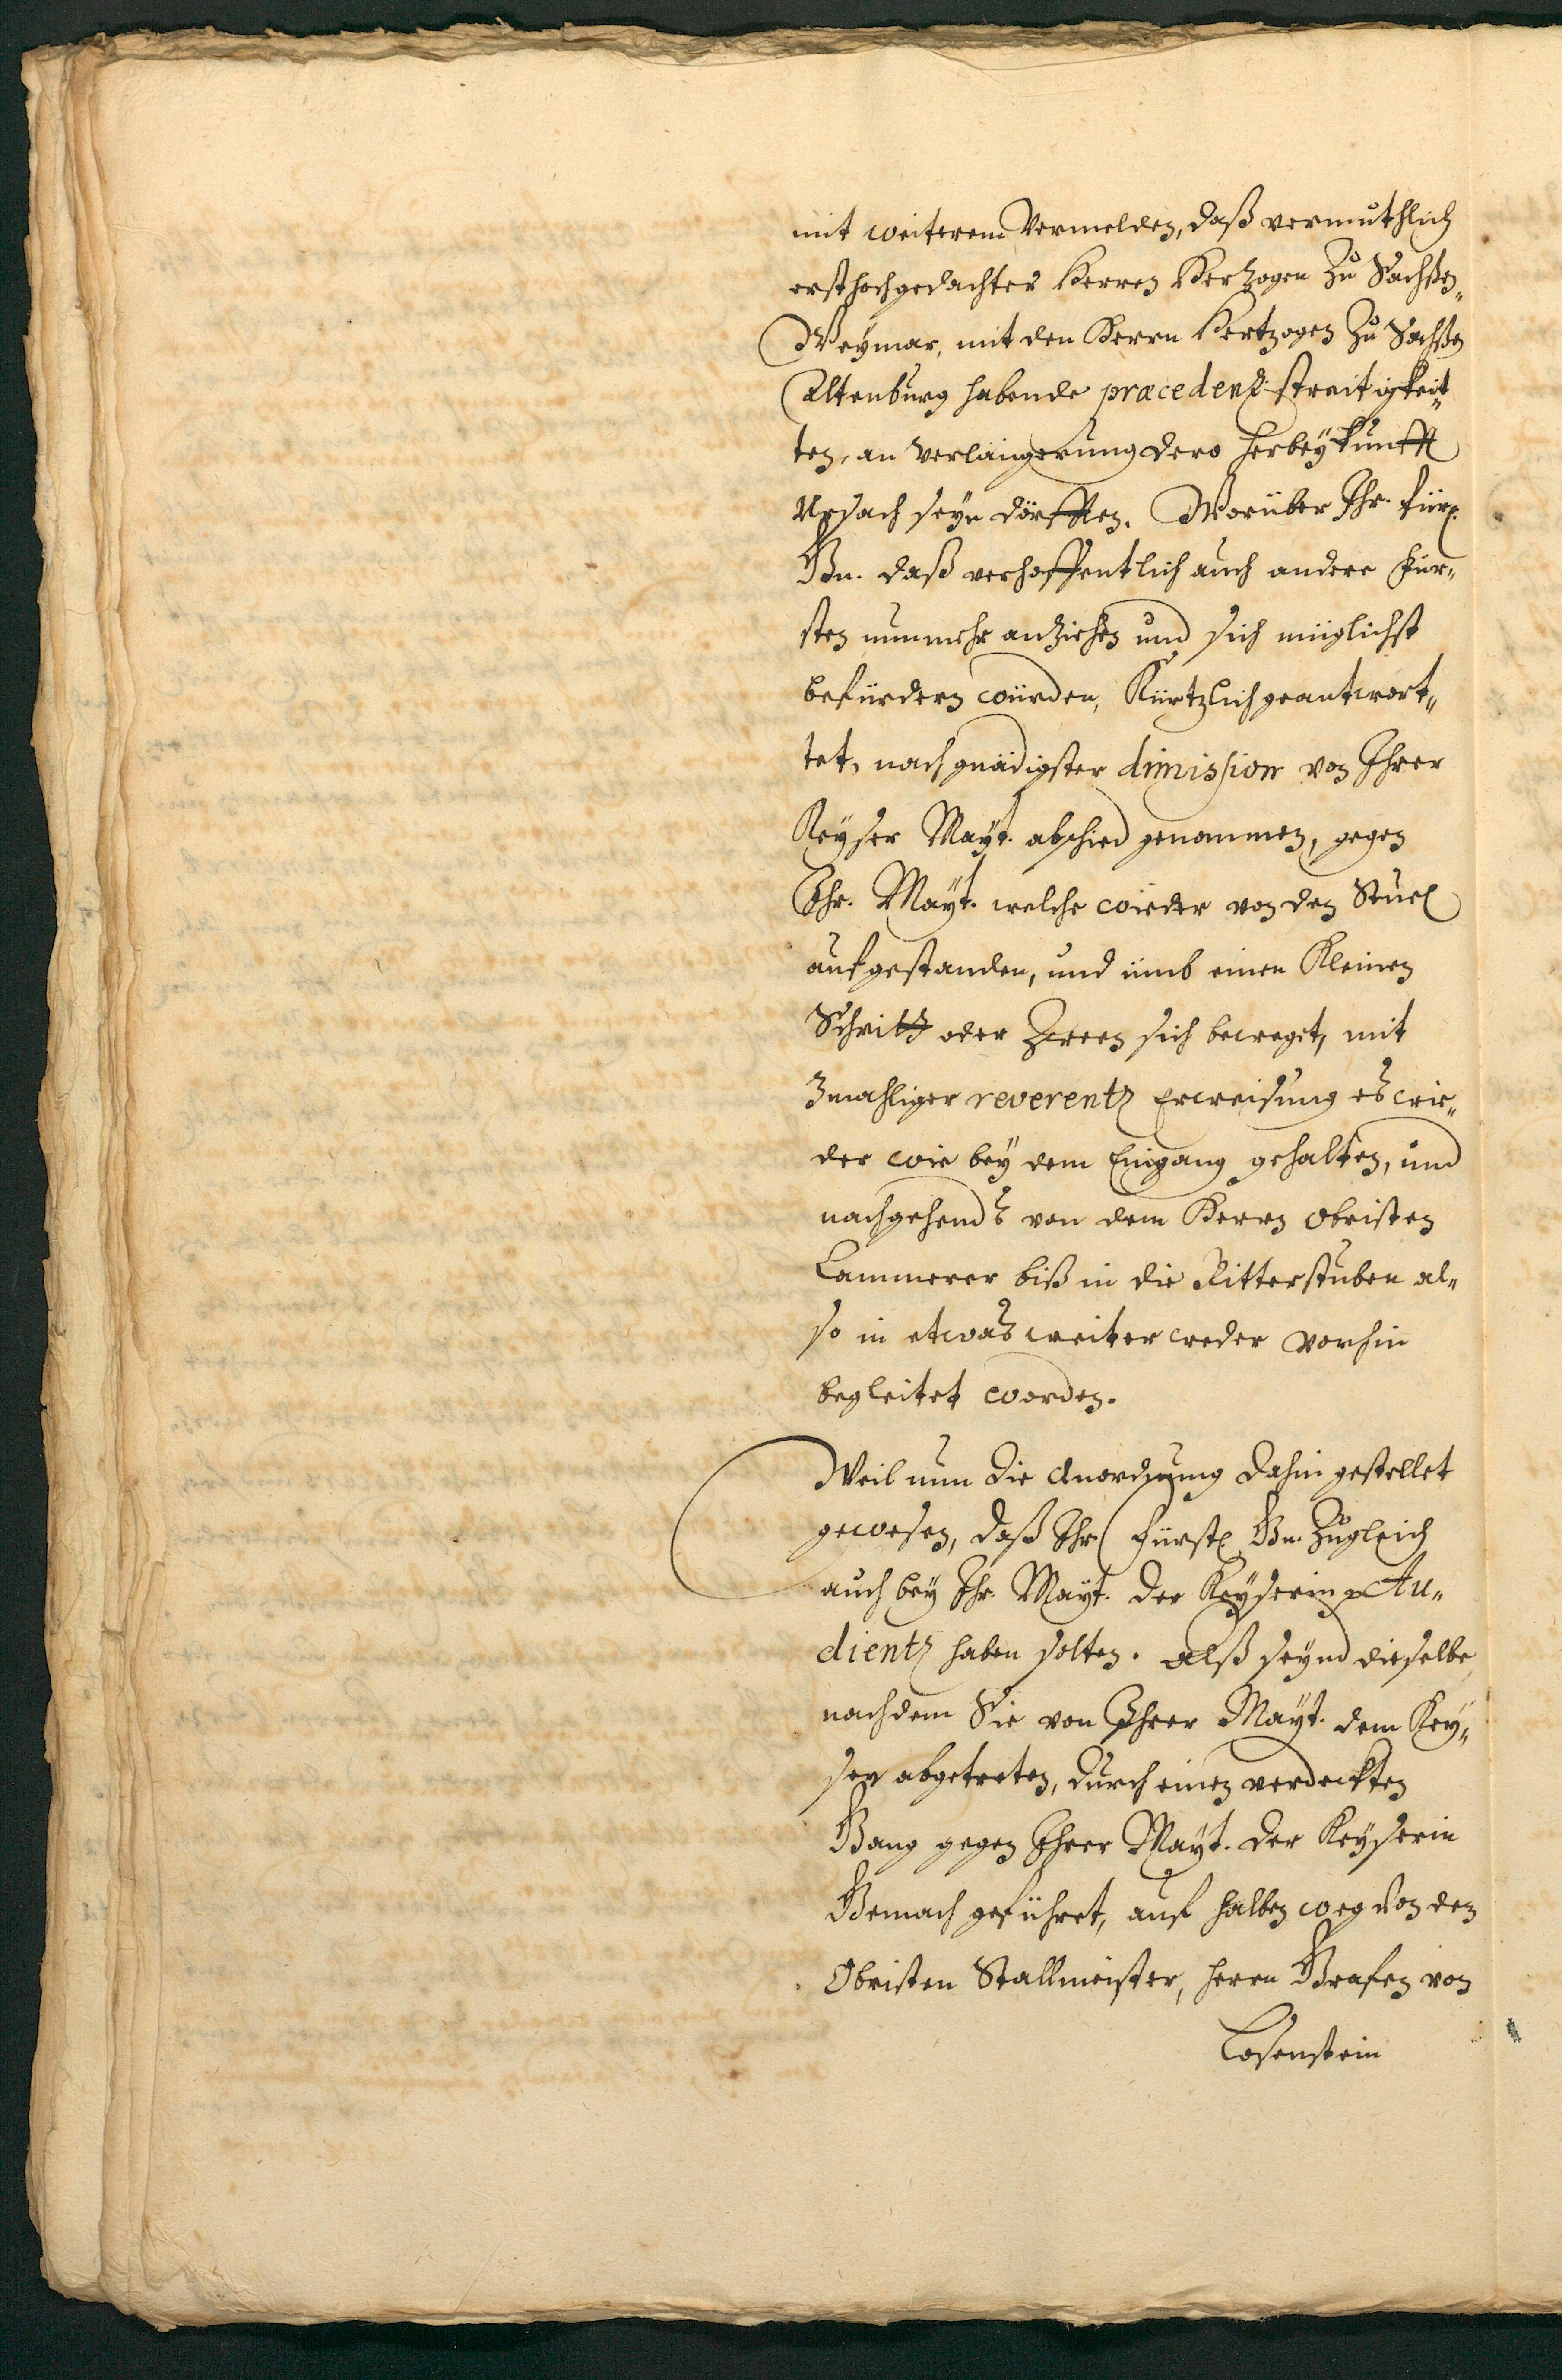 mit weiterem Vermelden, daß vermuthlich
ersthochgedachter Herren Hertzogen Zu Sachßen„
Weÿmar, mit den Herrn Hertzogen Zu Sachßen
Altenburg habende præcedentz streitigkeit„
ten, an Verlängerung dero herbeÿkunfft
Uhrsach seyn dörfften. Worüber Ihr. fürstl.
Gn. daß verhoffentlich auch andere Für„
sten nunmehr anziehen und sich müglichst
befürdern würden, Kürtzlich geantwort„
tet, nach gnädigster dimission von Ihrer
Keyser Mayt. abschied genommen, gegen
Ihr. Mayt. welche wieder von den Stuel
aufgestanden, und umb einen Kleinen
Schritt oder Zween sich beweget, mit
3mahliger reverentz erweisung es wie„
der wie beÿ dem Eingang gehalten, und
nachgehends von dem Herrn Obristen
Cammerer biß in die Ritterstuben al„
so in etwas weiter weder vorhin
begleitet worden.
Weil nun die Anordnung dahin gestellet
gewesen, daß Ihr fürstl. Gn. Zugleich
auch beÿ Ihr. Mayt. der Keyserin Au„
dientz haben solten. Alß seynd dieselbe
nachdem Sie von Ihrer Mayt. dem Key„
ser abgetreten, durch einen verdeckten
Gang gegen Ihrer Mayt. der Keyserin
Gemach geführet, auf halben weg von den
Obristen Stallmeister, herrn Grafen von
Losenstein